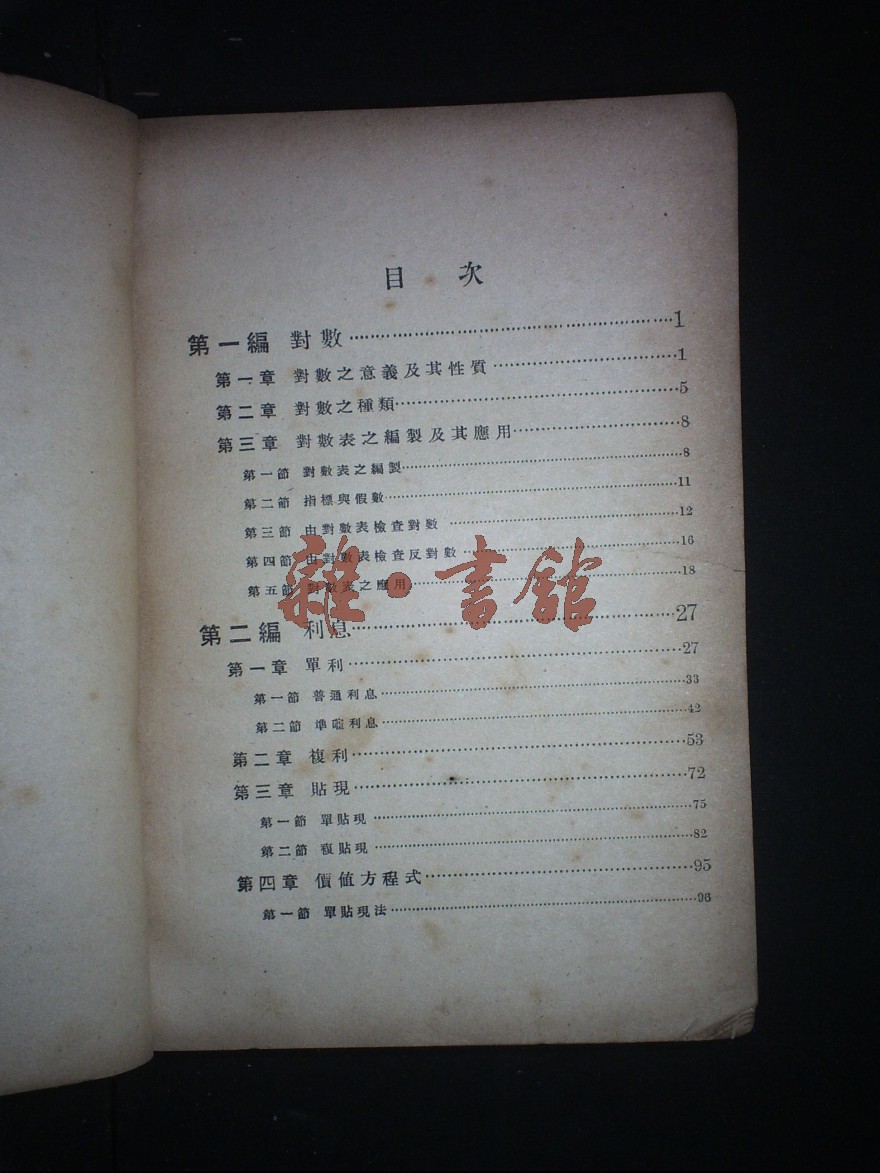 目 次
第一編 對數 1
第一章 對數之意義及其性質 1
第二章 對數之種類 5
第三章 對數表之編製及其應用 8
第一節 對數表之編製 8
第二節 指標與假數 11
第三節 由對數表檢查對數 12
第四節 由對數表檢查反對數 16
第五節 對數表之應用 18
雜·書館
第二編 利息 27
第一章 單利 27
第一節 普通利息 33
第二節 準確利息 42
第二章 複利 53
第三章 貼現 72
第一節 單貼現 75
第二節 複貼現 82
第四章 價值方程式 95
第一節 單貼現法 96